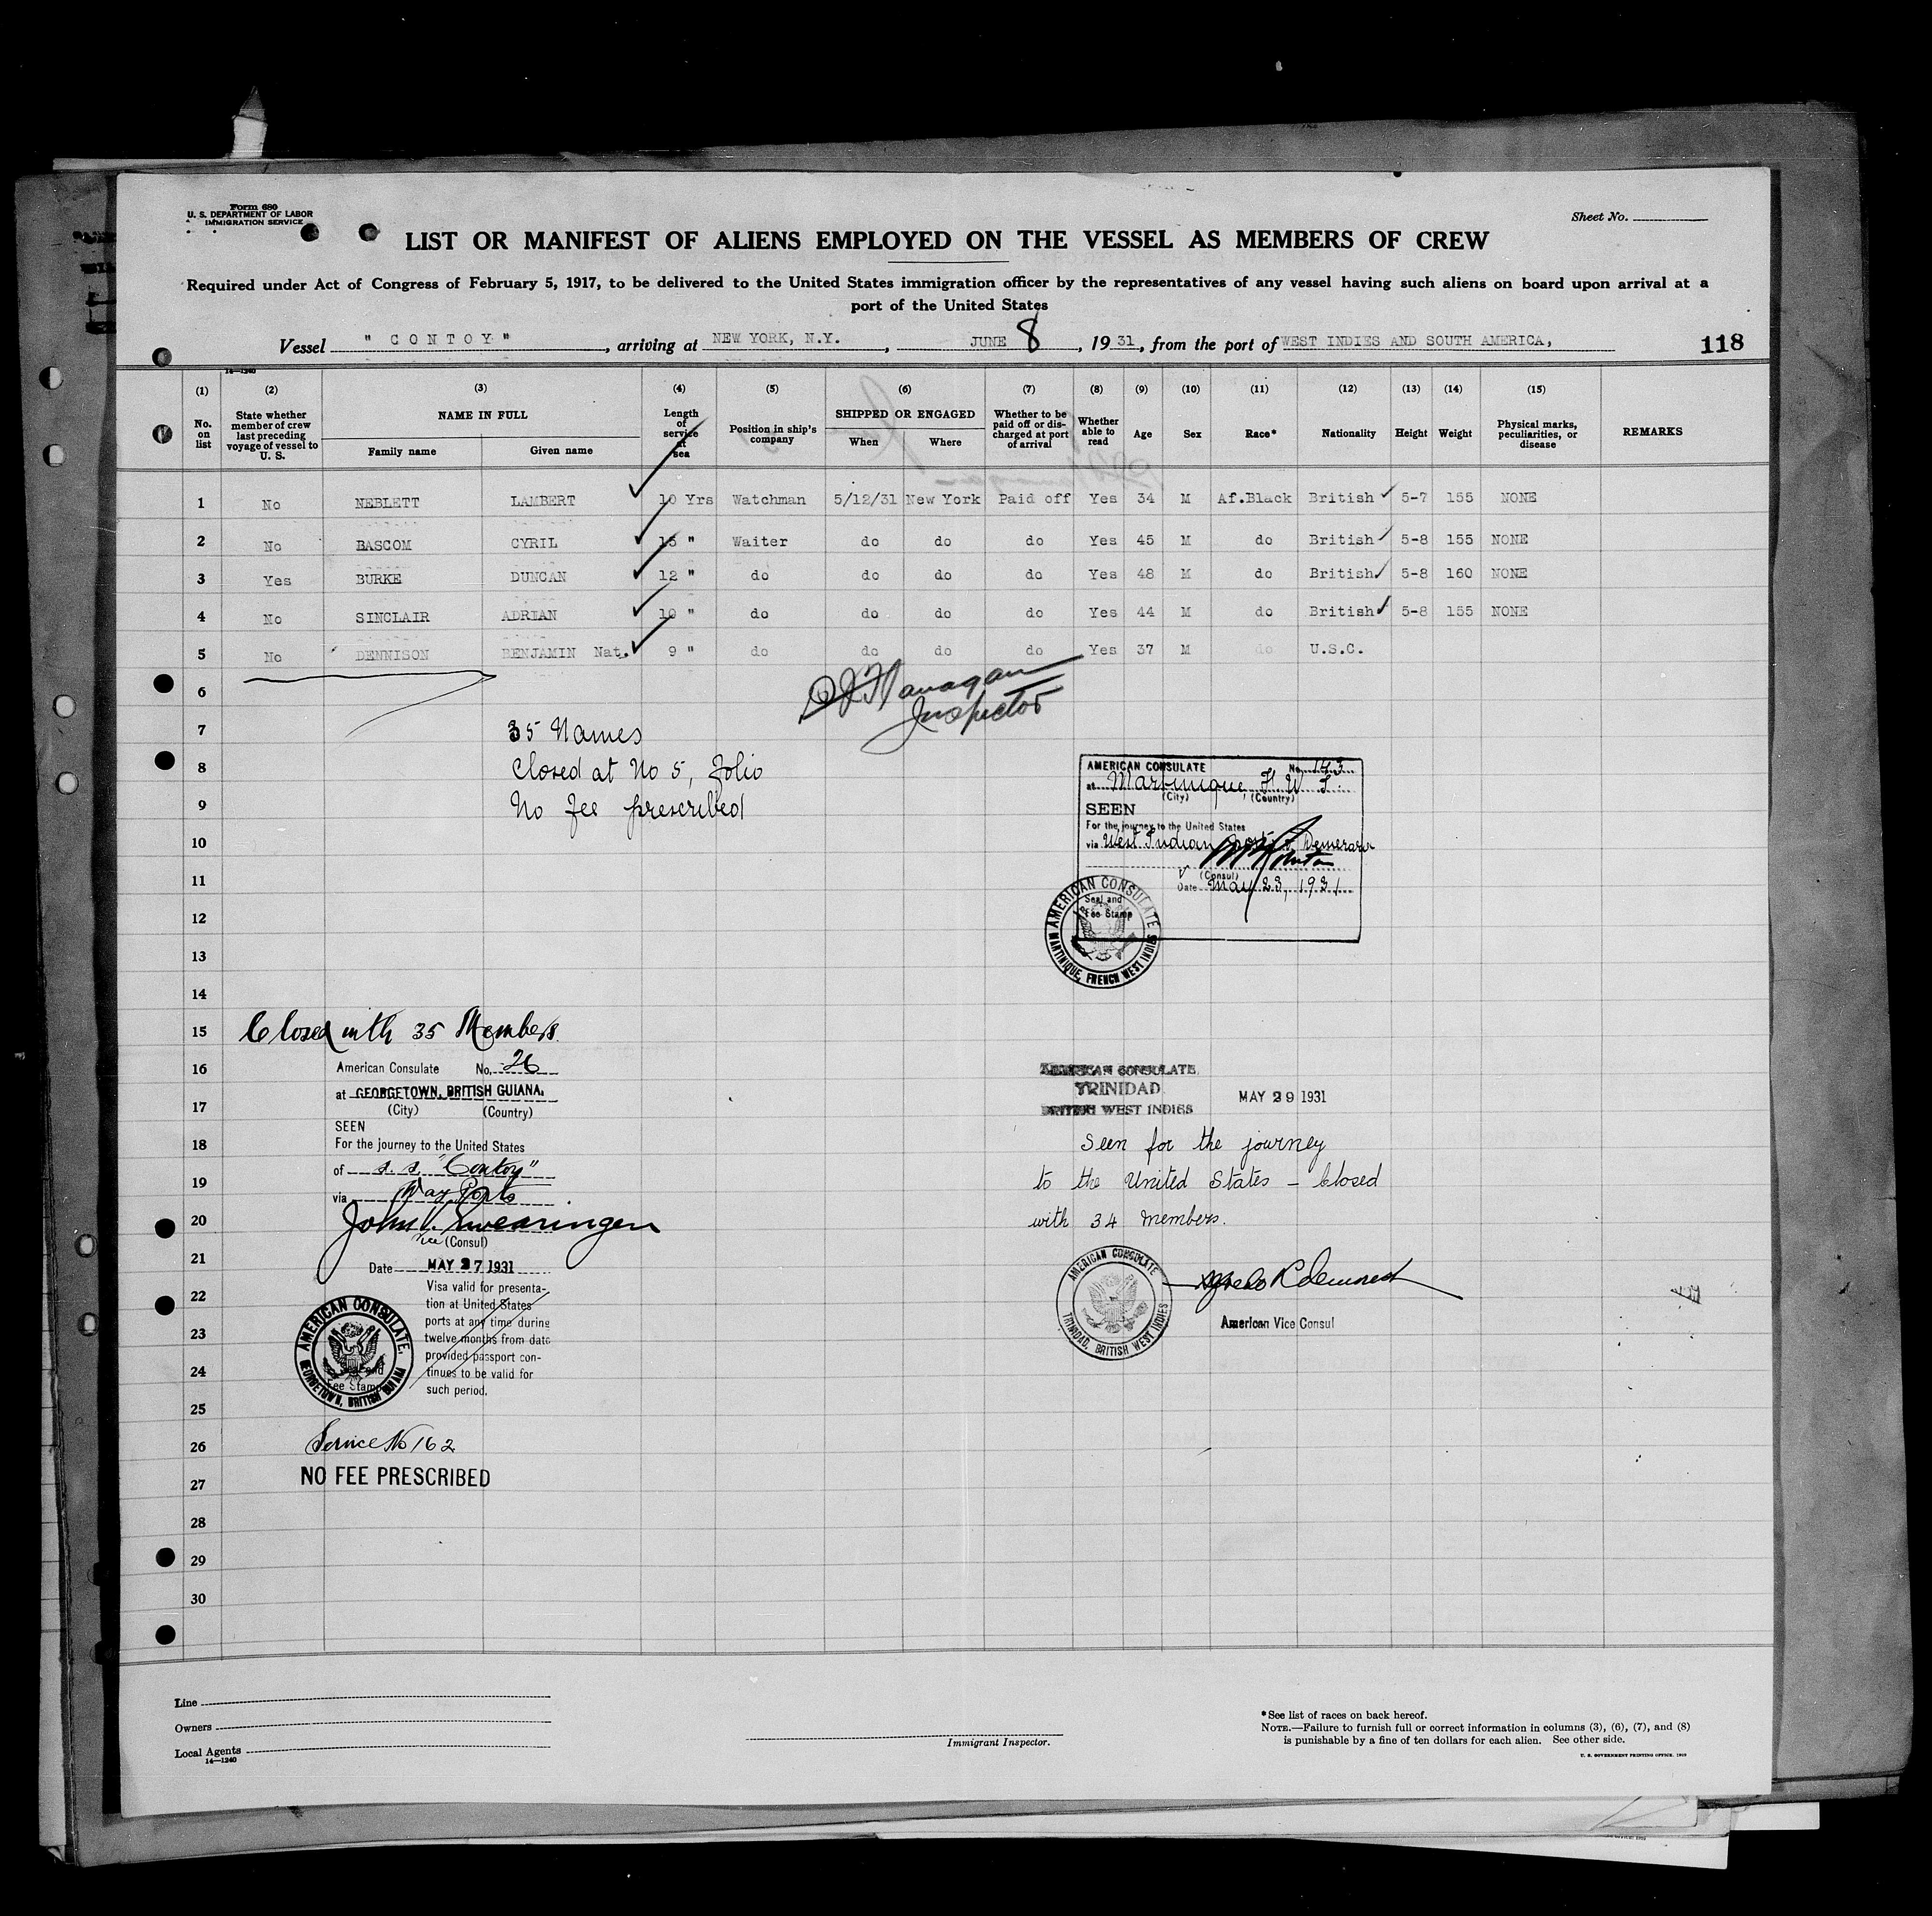 Form 680
U. S. DEPARTMENT OF LABOR
IMMIGRATION SERVICE
Sheet No.
LIST OR MANIFEST OF ALIENS EMPLOYED ON THE VESSEL AS MEMBERS OF CREW
Required under Act of Congress of February 5, 1917, to be delivered to the United States immigration officer by the representatives of any vessel having such aliens on board upon arrival at a
port of the United States
Vessel " CONTOY ", arriving at NEW YORK, N.Y., JUNE 8, 1931, from the port of WEST INDIES AND SOUTH AMERICA,
118
14—1240
(1) (2) (3) (4) (5) (6) (7) (8) (9) (10) (11) (12) (13) (14) (15)
No. on list
State whether member of crew last preceding voyage of vessel to U. S.
NAME IN FULL
Family name
Given name
Length of service at sea
Position in ship's company
SHIPPED OR ENGAGED
When
Where
Whether to be paid off or discharged at port of arrival
Whether able to read
Age
Sex
Race*
Nationality
Height
Weight
Physical marks, peculiarities, or disease
REMARKS
1 No NEBLETT LAMBERT 10 Yrs Watchman 5/12/31 New York Paid off Yes 34 M Af.Black British 5-7 155 NONE
2 No BASCOM CYRIL 15 " Waiter do do do Yes 45 M do British 5-8 155 NONE
3 Yes BURKE DUNCAN 12 " do do do do Yes 48 M do British 5-8 160 NONE
4 No SINCLAIR ADRIAN 10 " do do do do Yes 44 M do British 5-8 155 NONE
5 No DENNISON BENJAMIN Nat. 9 " do do do do Yes 37 M do U.S.C.
6
Flanagan
Inspector
7
35 Names
8
Closed at No 5, Folio
9
No fee prescribed
10
11
12
13
14
AMERICAN CONSULATE No. 143
at Martinique F. W. I.
(City) (Country)
SEEN
For the journey to the United States
via West Indian ports & Demerara
(Consul)
Date May 23, 1931
Seal and
Fee Stamp
AMERICAN CONSULATE
MARTINIQUE, FRENCH WEST INDIES
15
Closed with 35 Members.
16
American Consulate No. 26
at GEORGETOWN, BRITISH GUIANA.
17
(City) (Country)
SEEN
18
For the journey to the United States
of s. s. "Contoy"
19
via Way Ports
20
John Swearingen
Vice (Consul)
21
Date MAY 27 1931
22
Visa valid for presenta-
tion at United States
23
ports at any time during
twelve months from date
24
provided passport con-
tinues to be valid for
such period.
AMERICAN CONSULATE,
GEORGETOWN, BRITISH GUIANA
Fee Stamp
25
26
Service No 162
27
NO FEE PRESCRIBED
28
29
30
AMERICAN CONSULATE
TRINIDAD
BRITISH WEST INDIES
MAY 29 1931
Seen for the journey
to the United States – Closed
with 34 members.
AMERICAN CONSULATE
TRINIDAD, BRITISH WEST INDIES
American Vice Consul
Line
Owners
Local Agents
14—1240
Immigrant Inspector.
*See list of races on back hereof.
NOTE.—Failure to furnish full or correct information in columns (3), (6), (7), and (8)
is punishable by a fine of ten dollars for each alien. See other side.